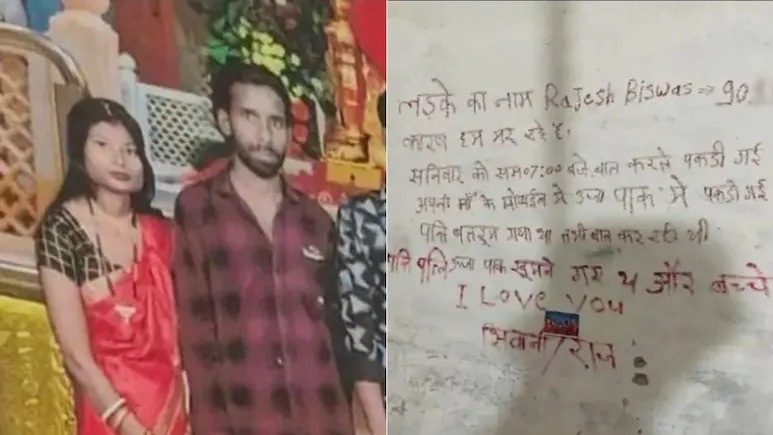 लड़के का नाम Rajesh Biswas → 90
कारण हम मर रहे है।
सनिवार को सम07:00 बजे बात करते पकड़ी गई
अपनी माँ के मोबाईल मे उर्जा पाक मे पकड़ी गई
पति बातरूम गया था तभी बात कर रही थी
पति पत्नि उर्जा पाक घूमने गए थे और बच्चे
I Love you
शिवानी/राज